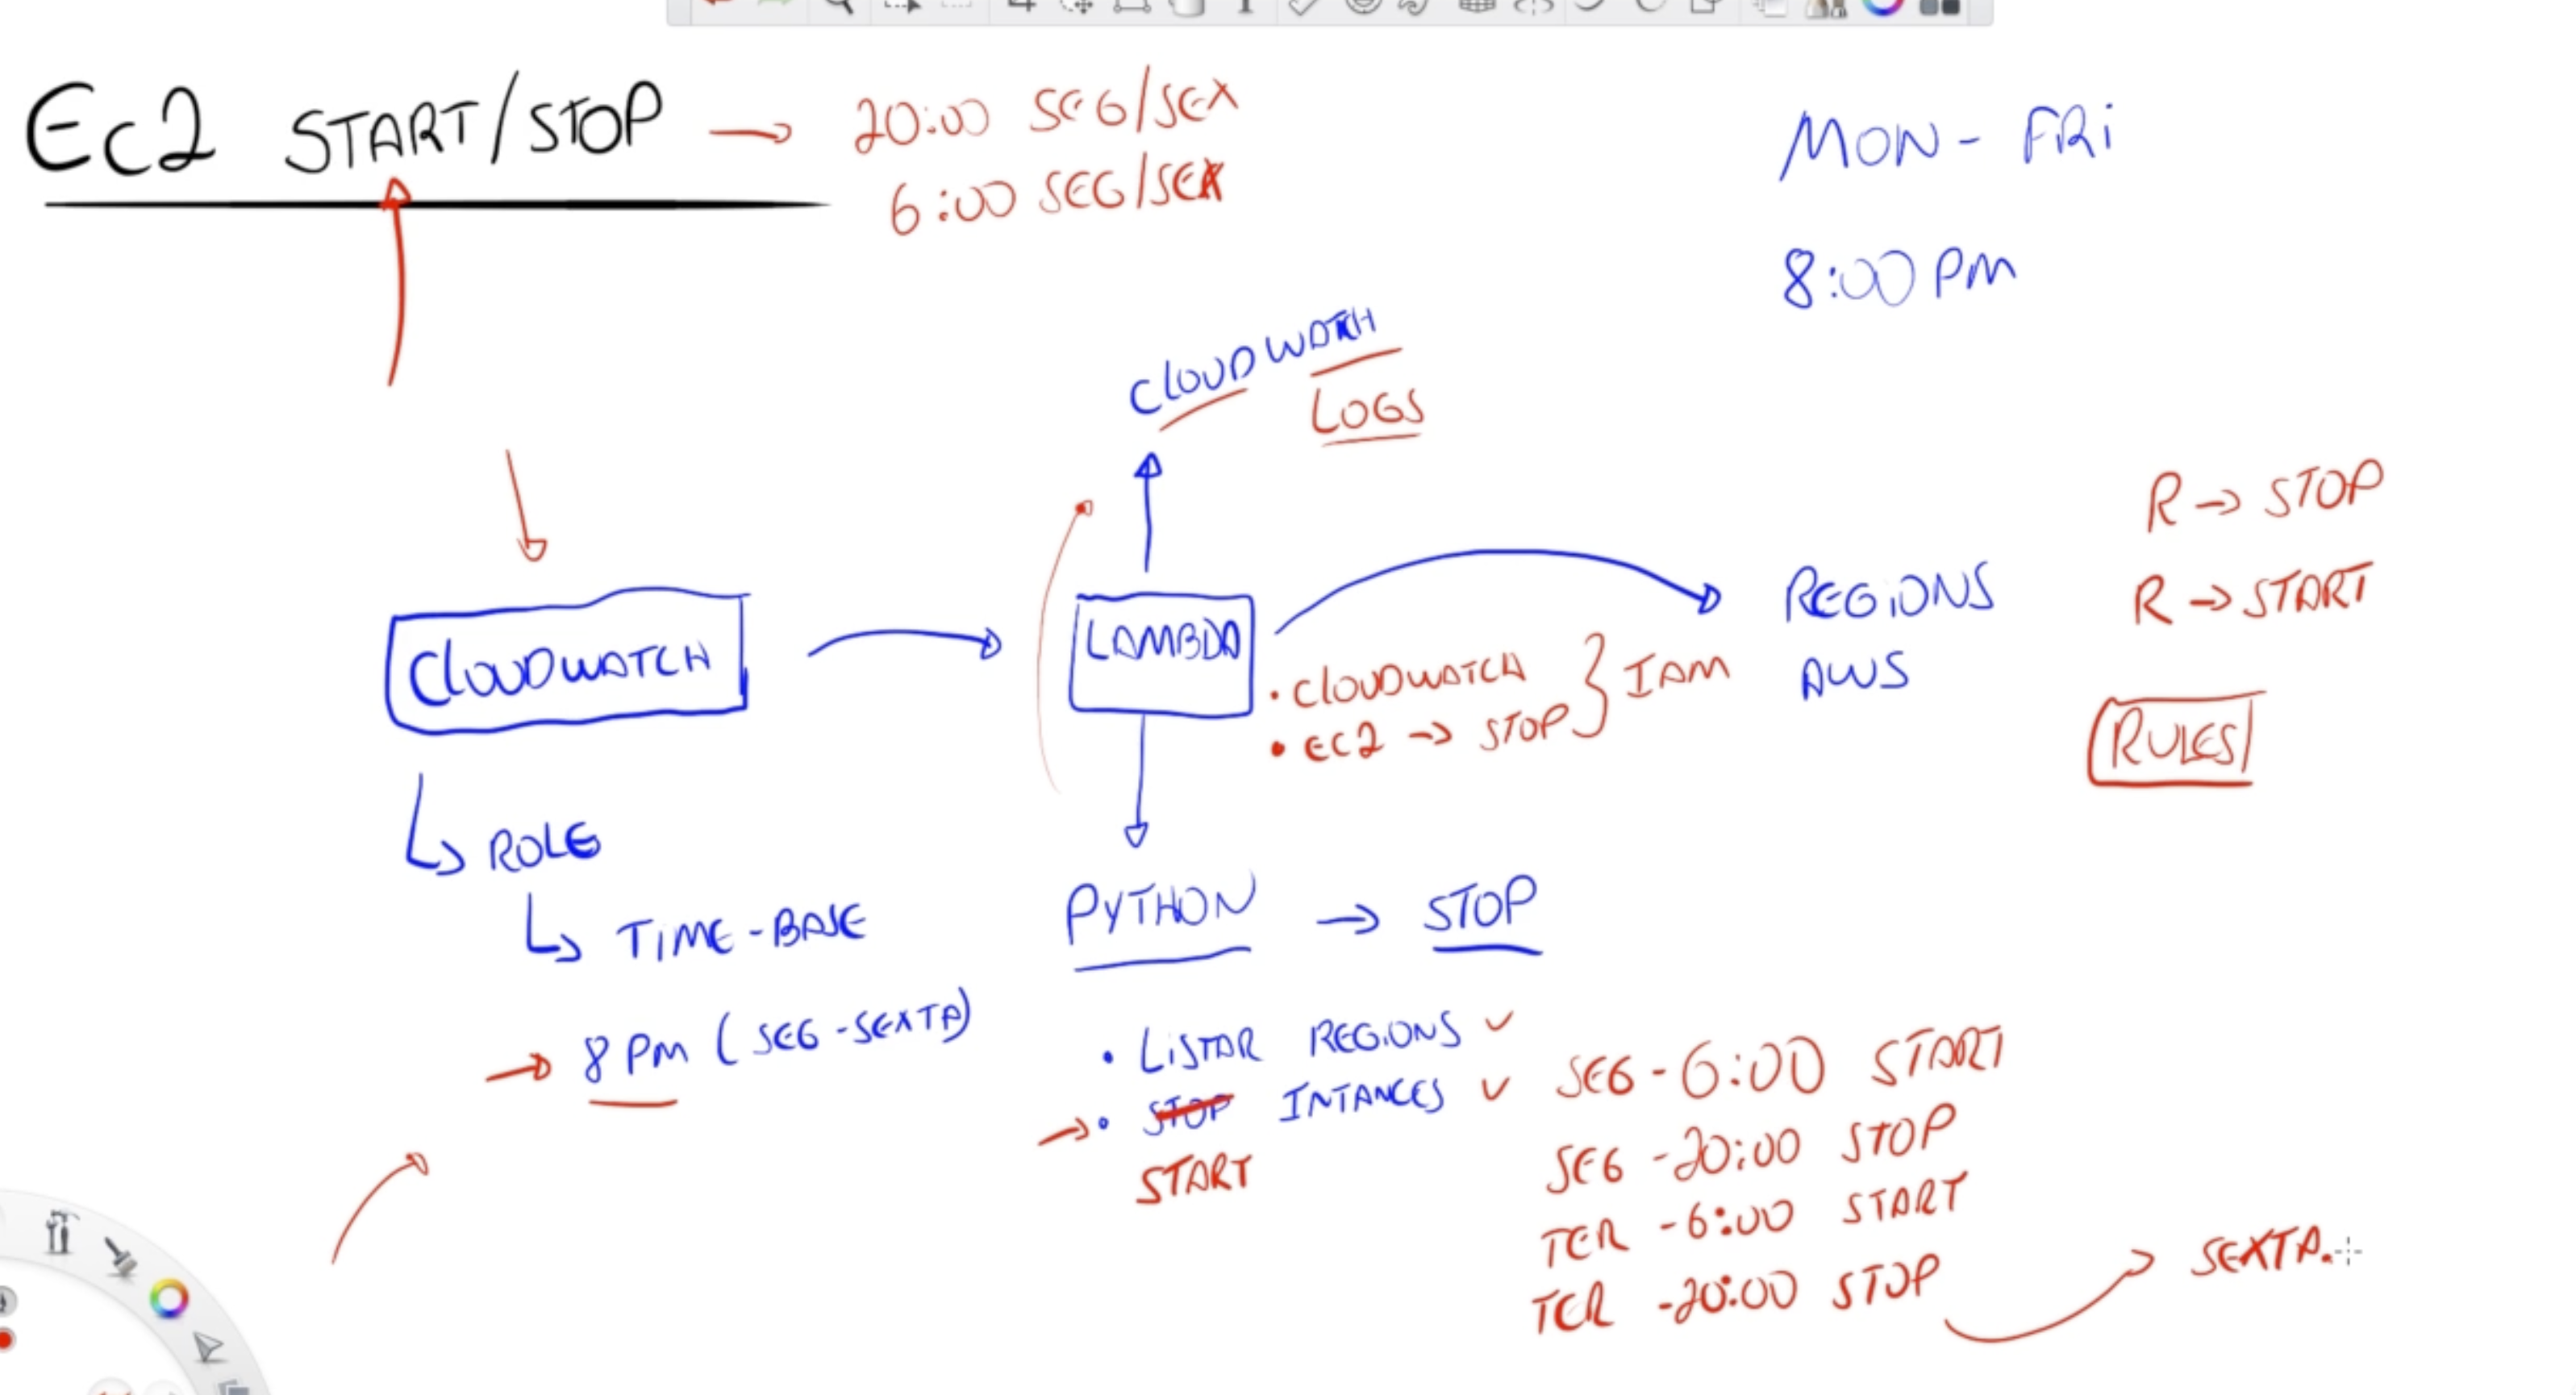 EC2 START/STOP → 20:00 SEG/SEX
6:00 SEG/SEX
MON - FRI
8:00 PM
CLOUDWATCH
LOGS
R → STOP
R → START
RULES
CLOUDWATCH
LAMBDA
REGIONS
AWS
• CLOUDWATCH
• EC2 → STOP } IAM
ROLE
TIME-BASE
→ 8 PM (SEG-SEXTA)
PYTHON → STOP
• LISTAR REGIONS ✓
→ • STOP INTANCES ✓
START
SEG - 6:00 START
SEG - 20:00 STOP
TER - 6:00 START
TER - 20:00 STOP
SEXTA.